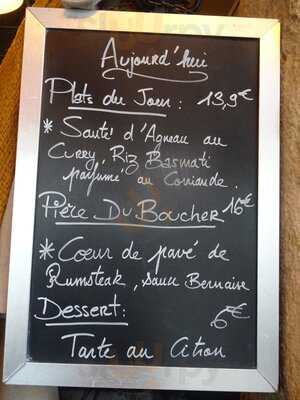 Aujourd'hui
Plats du Jour : 13,9€
* Sauté d'Agneau au
Curry, Riz Basmati
parfumé au Coriande.
Pièce Du Boucher 16€
* Coeur de pavé de
Rumsteak, sauce Bernaise
Dessert: 6€
Tarte au Citron